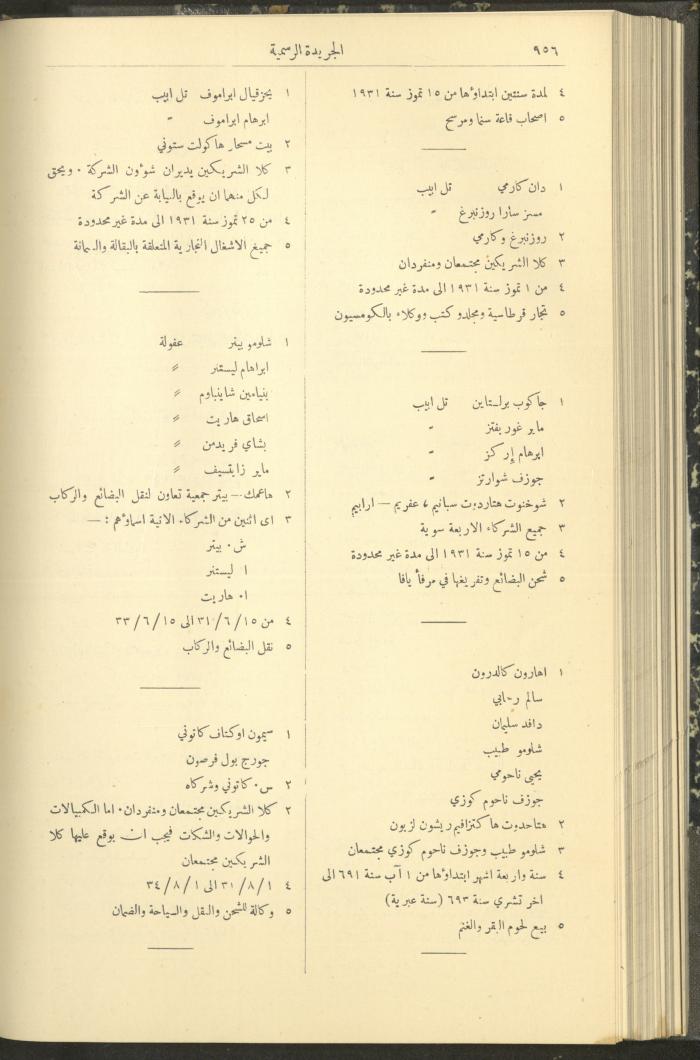 ٩٥٦
الجريدة الرسمية
٤ لمدة سنتين ابتداؤها من ١٥ تموز سنة ١٩٣١
٥ اصحاب قاعة سنما ومرسح
١ دان كارمي تل ابيب
مسز سارا روزنبرغ "
٢ روزنبرغ وكارمي
٣ كلا الشريكين مجتمعان ومنفردان
٤ من ١ تموز سنة ١٩٣١ الى مدة غير محدودة
٥ تجار قرطاسية ومجلدو كتب ووكلاء بالكومسيون
١ جاكوب براستاين تل ابيب
ماير غور يفتز "
ابرهام إركز "
جوزف شوارتز "
٢ شوخنوت هتاردوت سبانيم، عفريم — ارابيم
٣ جميع الشركاء الاربعة سوية
٤ من ١٥ تموز سنة ١٩٣١ الى مدة غير محدودة
٥ شحن البضائع وتفريغها في مرفأ يافا
١ اهارون كالدرون
سالم رحابي
دافد سليمان
شلومو طبيب
يحيى ناحومي
جوزف ناحوم كوزي
٢ هتاحدوت ها كتزافيم ريشون لزيون
٣ شلومو طبيب وجوزف ناحوم كوزي مجتمعان
٤ سنة واربعة اشهر ابتداؤها من ١ آب سنة ٦٩١ الى
اخر تشري سنة ٦٩٣ (سنة عبرية)
٥ بيع لحوم البقر والغنم
١ يحزقيال ابراموف تل ابيب
ابرهام ابراموف "
٢ بيت مسحار هاكولت ستوني
٣ كلا الشريكين يديران شوءون الشركة . ويحق
لكل منهما ان يوقع بالنيابة عن الشركة
٤ من ٢٥ تموز سنة ١٩٣١ الى مدة غير محدودة
٥ جميع الاشغال التجارية المتعلقة بالبقالة والسمانة
١ شلومو بيتر عفولة
ابراهام ليستنر "
بنيامين شاينباوم "
اسحاق هاريت "
بشاي فريدمن "
ماير زايتسيف "
٢ هاعمك — بيتر جمعية تعاون لنقل البضائع والركاب
٣ اى اثنين من الشركاء الاتية اسماؤهم : —
ش . بيتر
ا ليستنر
ا. هاريت
٤ من ١٥/٦/٣١ الى ١٥/٦/٣٣
٥ نقل البضائع والركاب
١ سيمون اوكتاف كاتوني
جورج بول فرصون
٢ س . كاتوني وشركاه
٢ كلا الشريكين مجتمعان ومنفردان . اما الكمبيالات
والحوالات والشكات فيجب ان يوقع عليها كلا
الشريكين مجتمعان
٤ ١/٨/٣١ الى ١/٨/٣٤
٥ وكالة للشحن والنقل والسياحة والضمان